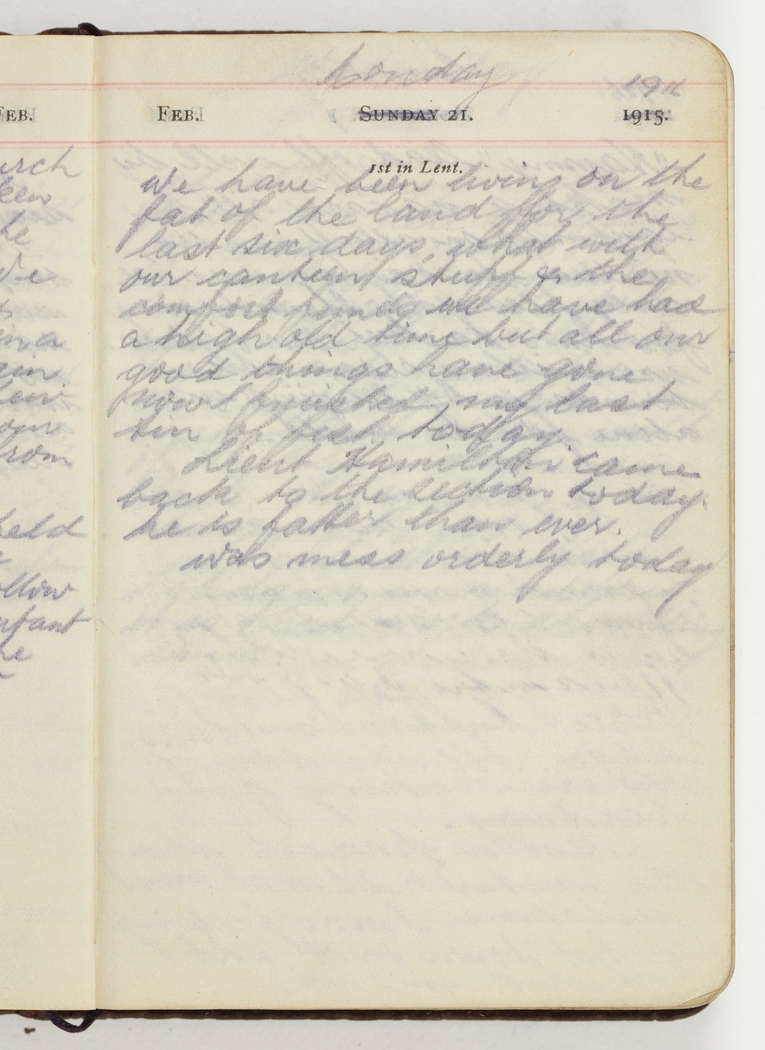 Monday 1916
FEB.
FEB. SUNDAY 21. 1915.
1st in Lent.
We have been living on the
fat of the land for the
last six days, what with
our canteen stuff & the
comfort funds we have had
a high old time but all our
good things have gone
now I finished my last
tin of fish today
Lieut Hamilton came
back to the section today.
he is fatter than ever.
was mess orderly today
urch
he
We
in a
our
from
held
ollow
nfant